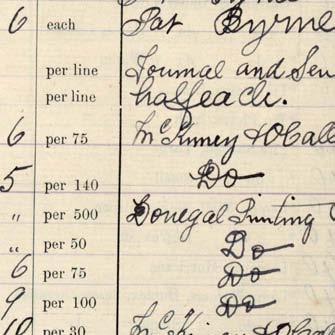 6 each Pat Byrne
per line Journal and Sen
per line half each.
6 per 75 McKinney & O'Call
5 per 140 Do
" per 500 Donegal Printing
" per 50 Do
6 per 75 Do
9 per 100 Do
10 per 30